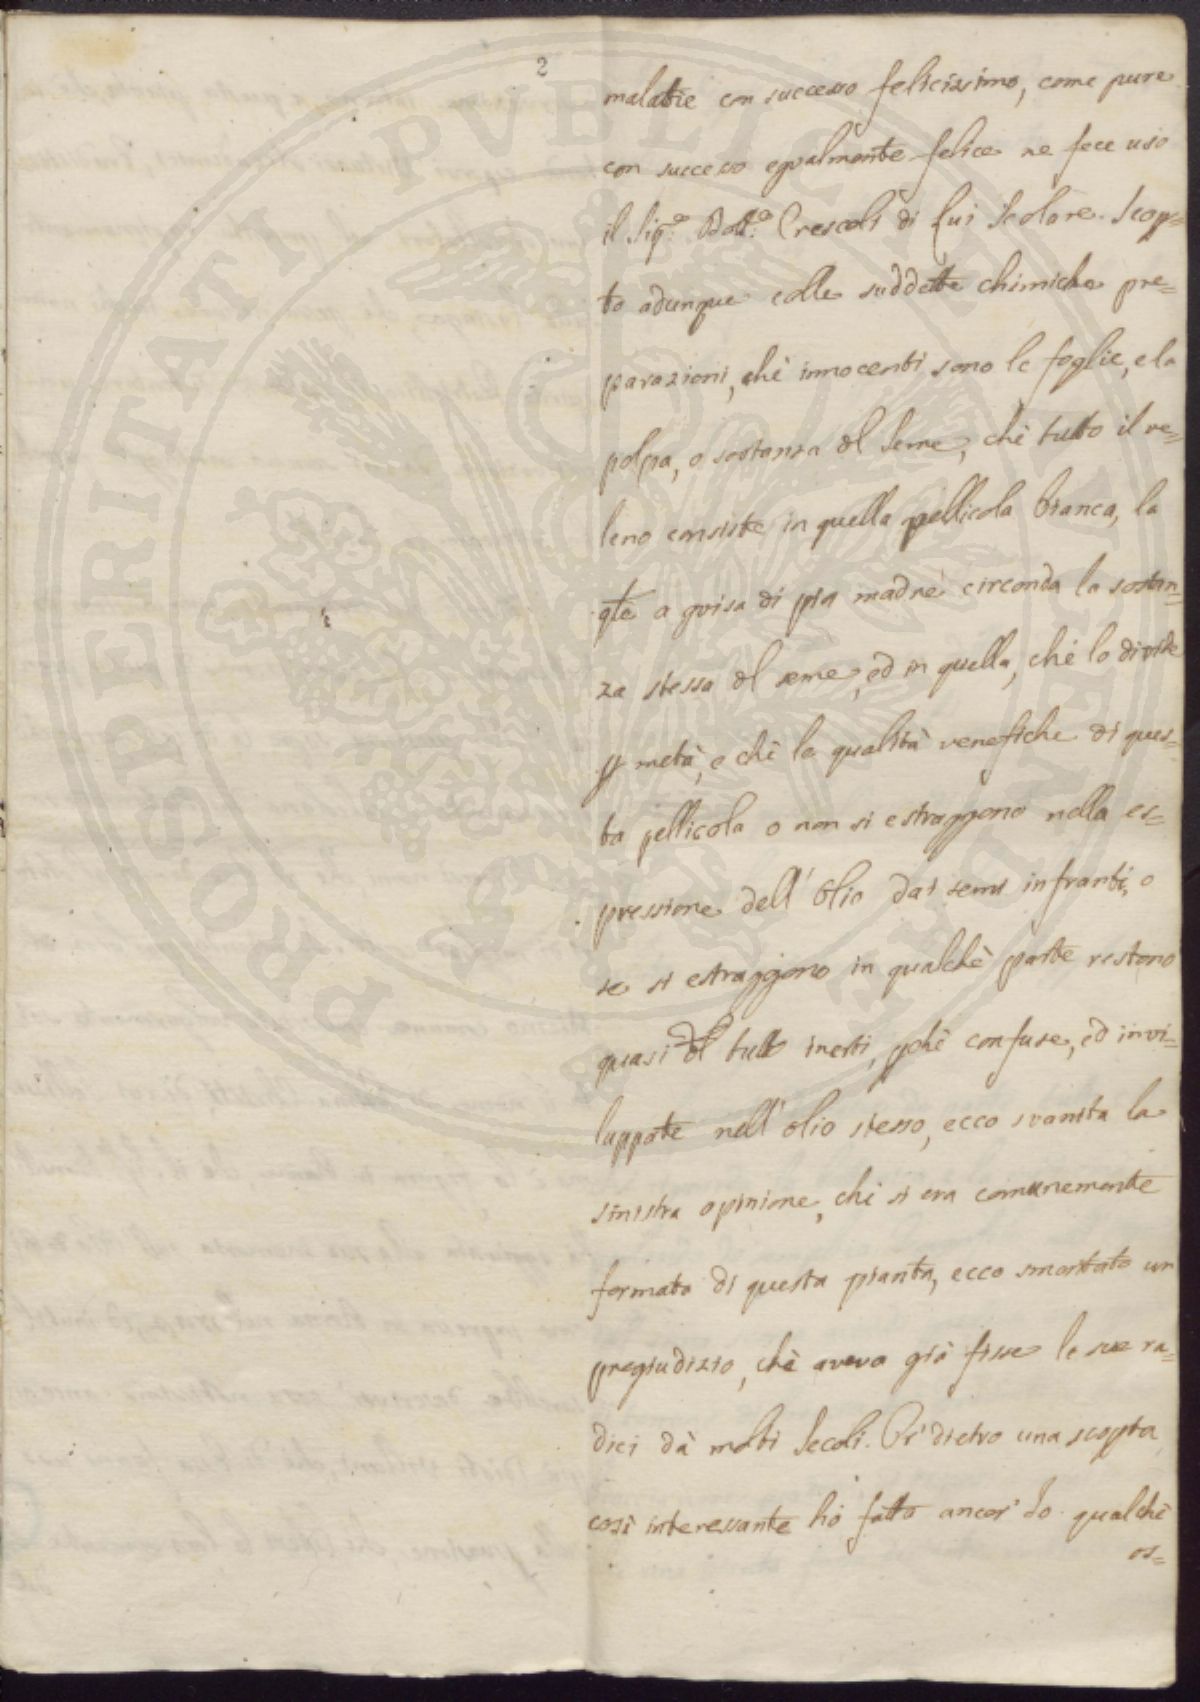 2
malatie con successo felicissimo, come pure
con successo egualmente felice ne fece uso
il Sigr.e Dott.e Crescoli di Lui Scolare. Scop=
to adunque colle suddette chimiche pre=
parazioni, chè innocenti sono le foglie, e la
polpa, o sostanza del Seme, chè tutto il ve=
leno consiste in quella pellicola bianca, la
qle a guisa di pia madre circonda la sostan=
za stessa del seme, ed in quella, chè lo divide
p metà, e chè le qualità venefiche di ques=
ta pellicola o non si estraggono nella es=
pressione dell' Olio dai semi infranti, o
se si estraggono in qualchè parte restano
quasi del tutto inerti, pchè confuse, ed invi=
luppate nell' olio stesso, ecco svanita la
sinistra opinione, chè si era comunemente
formata di questa pianta, ecco smontato un
pregiudizio, chè aveva già fisse le sue ra=
dici dà molti Secoli. Or dietro una scopta
così interessante hò fatto ancor' Io qualchè
os=
PROSPERITATI PVBLICAE AVGENDAE